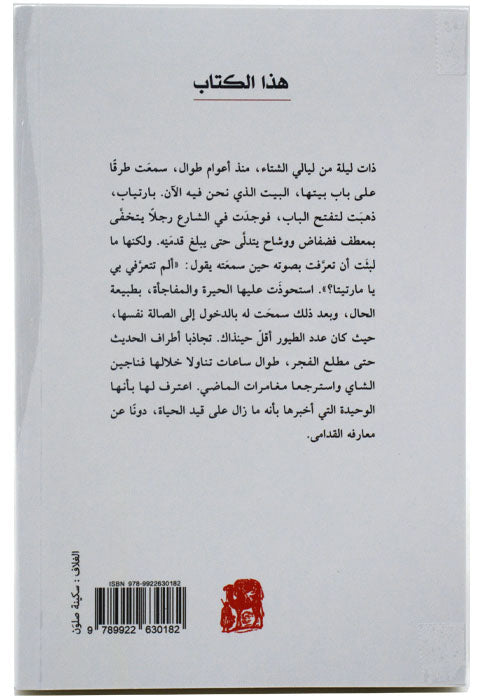 هذا الكتاب
ذات ليلة من ليالي الشتاء، منذ أعوام طوال، سمعَت طرقًا
على باب بيتها، البيت الذي نحن فيه الآن. بارتياب،
ذهبَت لتفتح الباب، فوجدَت في الشارع رجلًا يتخفَّى
بمعطف فضفاض ووشاح يتدلَّى حتى يبلغ قدمَيْه. ولكنها ما
لبثَت أن تعرَّفت بصوته حين سمعَته يقول: «ألم تتعرَّفي بي
يا مارتيتا؟». استحوذَت عليها الحيرة والمفاجأة، بطبيعة
الحال، وبعد ذلك سمحَت له بالدخول إلى الصالة نفسها،
حيث كان عدد الطيور أقلّ حينذاك. تجاذبا أطراف الحديث
حتى مطلع الفجر، طوال ساعات تناولا خلالها فناجين
الشاي واسترجعا مغامرات الماضي. اعترف لها بأنها
الوحيدة التي أخبرها بأنه ما زال على قيد الحياة، دونًا عن
معارفه القدامى.
الغلاف : سكينة صلوَن
ISBN 978-9922630182
9 789922 630182